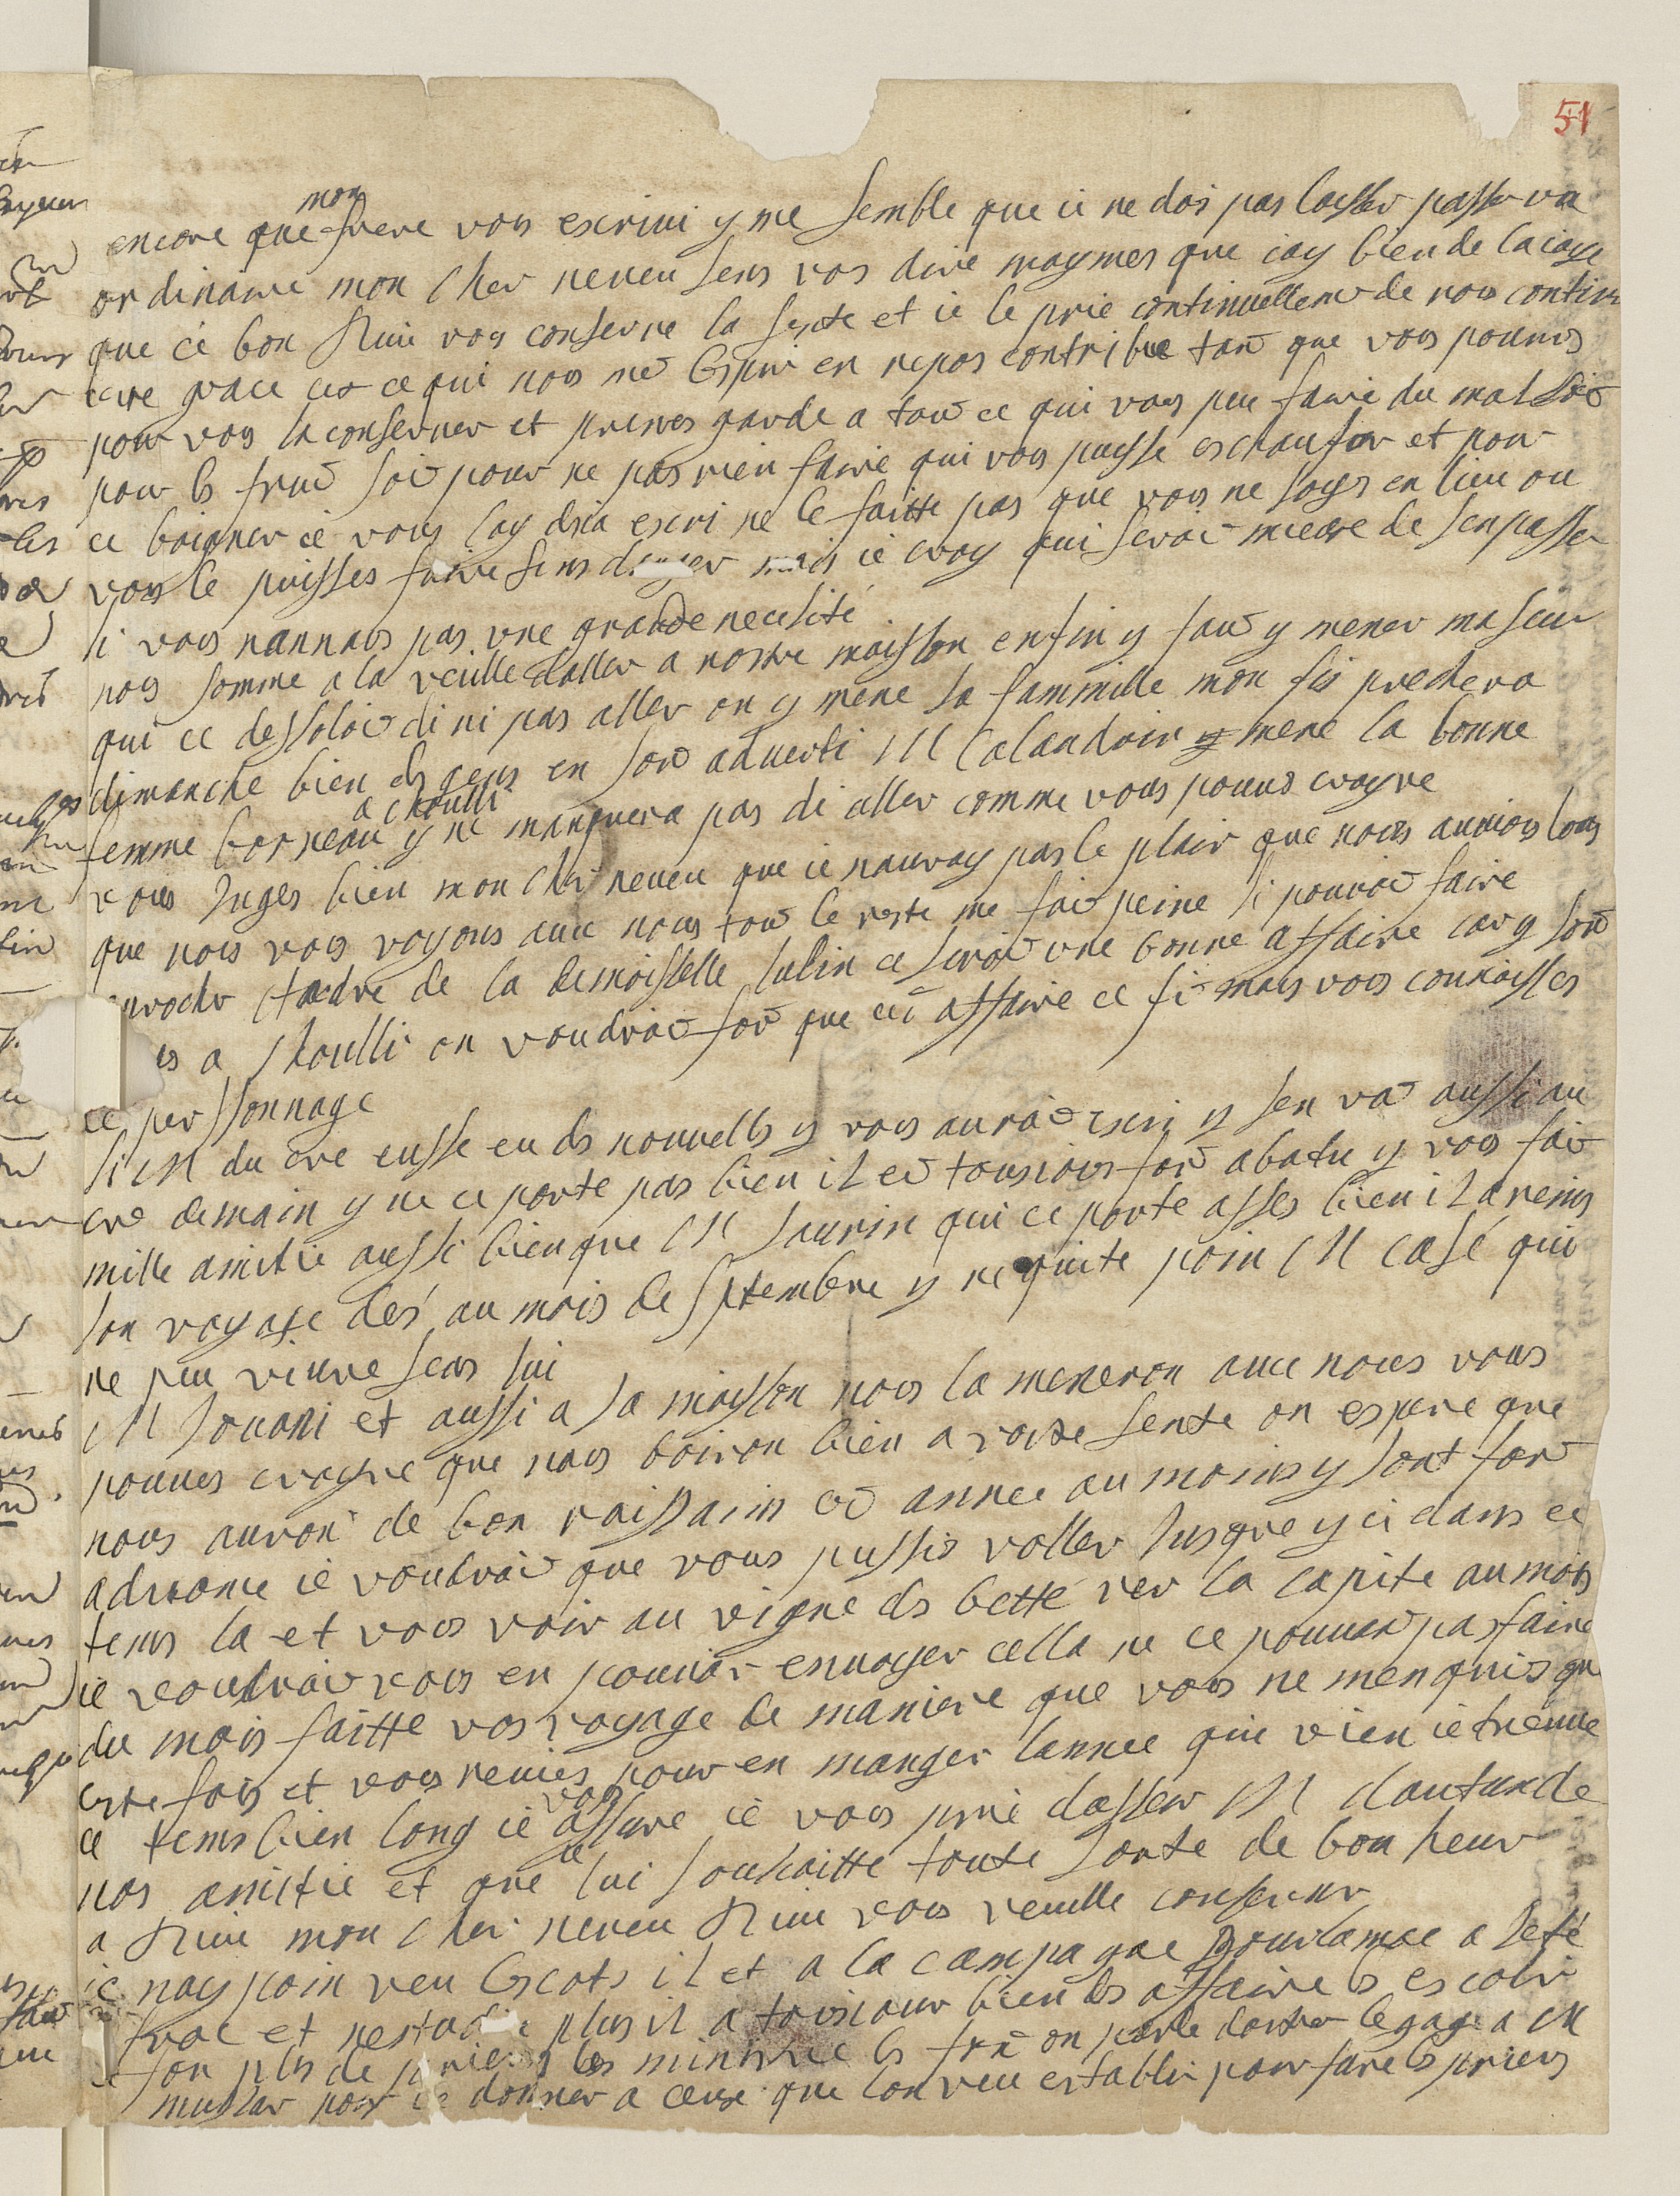 51
encore que mon frere vous escrivi y me semble que ie ne dois pas laisser passer un
ordinaire mon cher neveu sens vos dire moymes que iay bien de la ioye
que ce bon Dieu vous conserve la sente et ie le prie continuellemt de nous contin
pour vous la conserver et prenes garde a tout ce qui vous peu faire du mal soit
pour les fruit soit pour ne pas rien faire qui vous puisse eschaufer et pour
ce baigner ie vous lay deia escri ne le faitte pas que vous ne soyes en lieu ou
vous le puisses faire sens danger mais ie croy qui seroit mieux de sen passer
si vous nannaves pas une grande necesité
nous somme a la veille daller a nostre maison enfin y faut y mener ma seur
qui ce dessoloit di ni pas aller on y mene la fammille mon fis prechera
dimanche bien des gens en sont adverti M Calandrin y mene la bonne
femme borneau a choulli y ne manquera pas di aller comme vous pouves croyre
vous Juges bien mon cher neveu que ie nauray pas le plair que nous avions lors
que nous vous voyons avec nous tout le reste me fait peine si pouvoit faire
de la demoiselle lulin ce seroit une bonne affaire car y sont
a choulli on voudroit fort que cet affaire ce fit mais vous connoisses
ce perssonnage
si M du cre eusse eu des nouvelles y vous auroit escri y sen vat aussi au
cre demain y ne ce porte pas bien il et tousiours fort abatu y vous fait
mille amitie aussi bien que M Saurin qui ce porte asses bien il a remis
son voyage au mois de Septembre y ne quite poin M casé qui
ne peu vivre sens lui
M Jouani et aussi a sa maison nous la meneron avec nous vous
pouves croyre que nous boiron bien a vostre sente on espere que
nous auron de bon raissains cet annee au moins y sont fort
ie voudroit que vous pussies voller Jusque y ci dans ce
tems la et vous voir au vigne des bette ver la capite au mois
ie voudroit vous en pouvoir envoyer cella ne ce pouvan pas faire
du mois faitte vos voyage de maniere que vous ne menquies que
cette fois et vous venies pour en manger lannee qui vien ie treuve
ce tems bien long ie vous assure ie vous prie dasseur M dautunde
nos amitie et que ie lui souhaitte toute sorte de bon heur
a Dieu mon cher neveu Dieu vous veuille conserver
ie nay poin veu lescots il et a la campagne a Jeté
et plus il a tousiour bien des affaire les escolie
fon plus de les ministre on parle doster le gage a M
muslar pour le donner a ceux que lon veu establir pour faire les priers